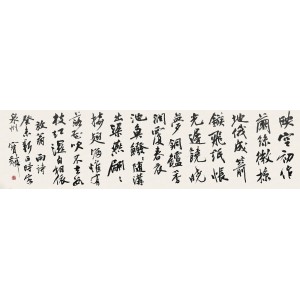 映空初作
繭絲微掠
地俄成箭
鏃飛紙帳
光遲饒曉
夢銅鑪香
潤覆春衣
池魚鱍〻隨溝
出梁燕翩〻
接翅歸惟有
落花吹不去數
枝紅溼自相依
放翁雨詩
癸未新正時客
泉州